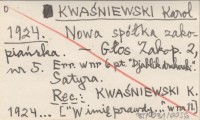 KWAŚNIEWSKI Karol
1924. Nowa spółka zako-
piańska. – Głos Zakop. 2,
nr 5. Err. w nr 6 pt.
Satyra.
Rec.: KWAŚNIEWSKI K.
1924... ["W imię prawdy..."